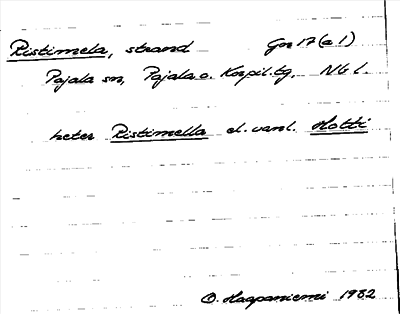 Ristimela, strand Gr 17 (a 1)
Pajala sn, Pajala o. Korpil. tg. Nb l.
heter Ristimella el. vanl. Hotti
O. Haapaniemi 1982